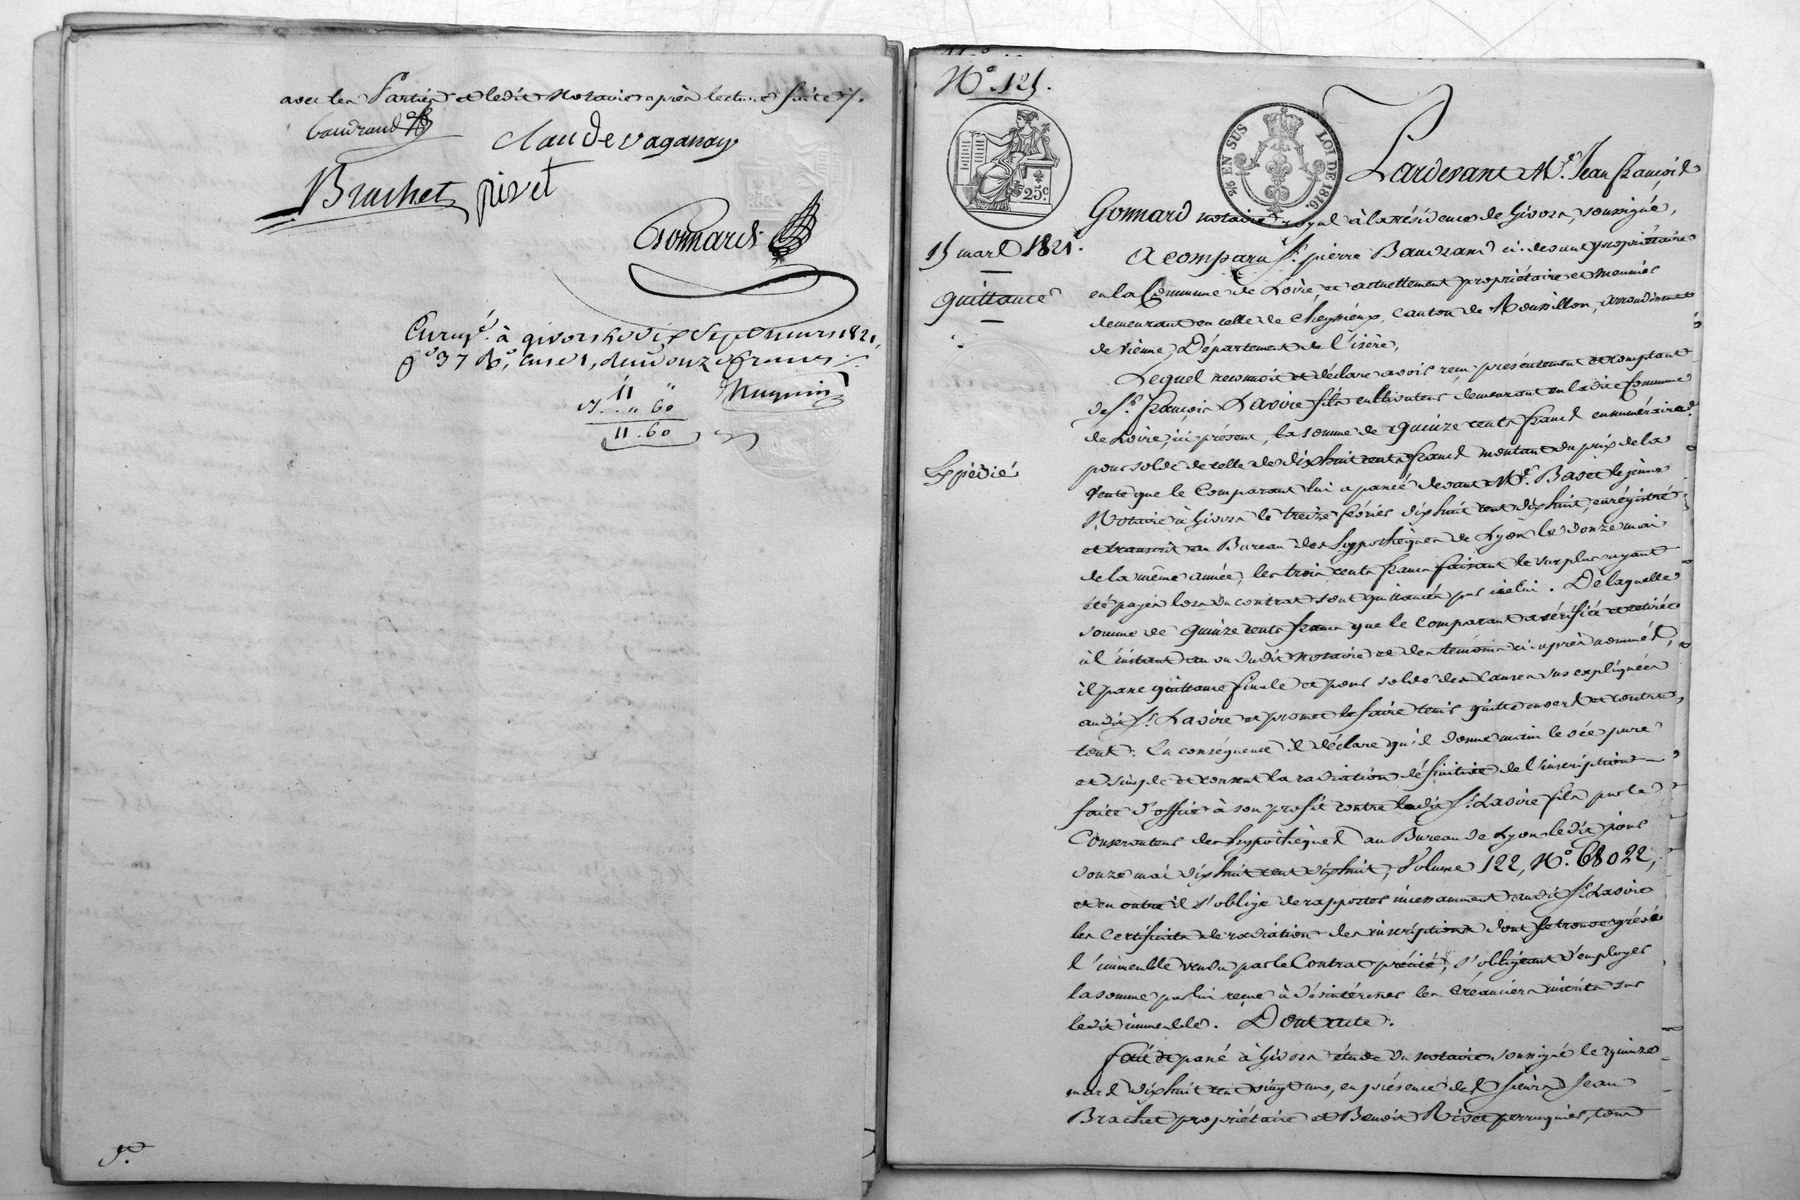 avec les parties et ledit notaire après lecture faite /.
baudrand
claude vaganay
Brachet
pivet
Gonnard
Enregé à givors le dix sept mars 1821,
fo 37 Ro, case 1, reçu onze francs
11 "
" 60
11.60
No 121.
25 EN SUS
LOI DE 1816.
25c
15 mars 1821.
quittance
Expédié
Pardevant Me. Jean françois
Gonnard notaire royal à la résidence de Givors, soussigné,
A comparu Sr. pierre Baudrand ci-devant propriétaire
en la Commune de Loire, et actuellement propriétaire et meunier
demeurant en celle de Cheyssieux, canton de Roussillon, arrondissement
de Vienne, Département de l'isère,
Lequel reconnoit et déclare avoir reçu présentement et comptant
de Sr. françois Lavoire fils cultivateur demeurant en ladite Commune
de Loire, ici présent, la somme de quinze cents francs en numéraire
pour solde de celle de dix huit cents francs montant du prix de la
Vente que le Comparant lui a passée devant Me. Basset le jeune
Notaire à Givors le treize février dix huit cent dix huit, enregistré
et transcrit au Bureau des hypothèques de Lyon le douze mai
de la même année, les trois cents francs faisant le surplus ayant
été payés lors du contrat sont quittancés par icelui. De laquelle
somme de quinze cents francs que le Comparant a vérifiée et retirée
à l'instant au vu dudit notaire et des témoins ci-après nommés,
il passe quittance finale et pour solde des causes sus expliquées
audit Sr. Lavoire et promet le faire tenir quitte envers et contre
tout. En conséquence il déclare qu'il donne main levée pure
et simple et consent la radiation définitive de l'inscription
faite d'office à son profit contre ledit Sr. Lavoire fils par le
Conservateur des hypothèques au Bureau de Lyon ledit jour
douze mai dix huit cent dix huit, Volume 122, No. 68022,
et en outre il s'oblige de rapporter incessamment audit Sr. Lavoire
les certificats de radiation des inscriptions dont se trouve grévé
l'immeuble vendu par le Contrat précité, s'obligeant d'employer
la somme par lui reçue à désintéresser les Créanciers inscrits sur
ledit immeuble. Dont acte.
fait et passé à Givors étude du notaire soussigné le quinze
mars dix huit cent vingt un, en présence des sieurs Jean
Brachet propriétaire et Benoit Rivet perruquier, tous